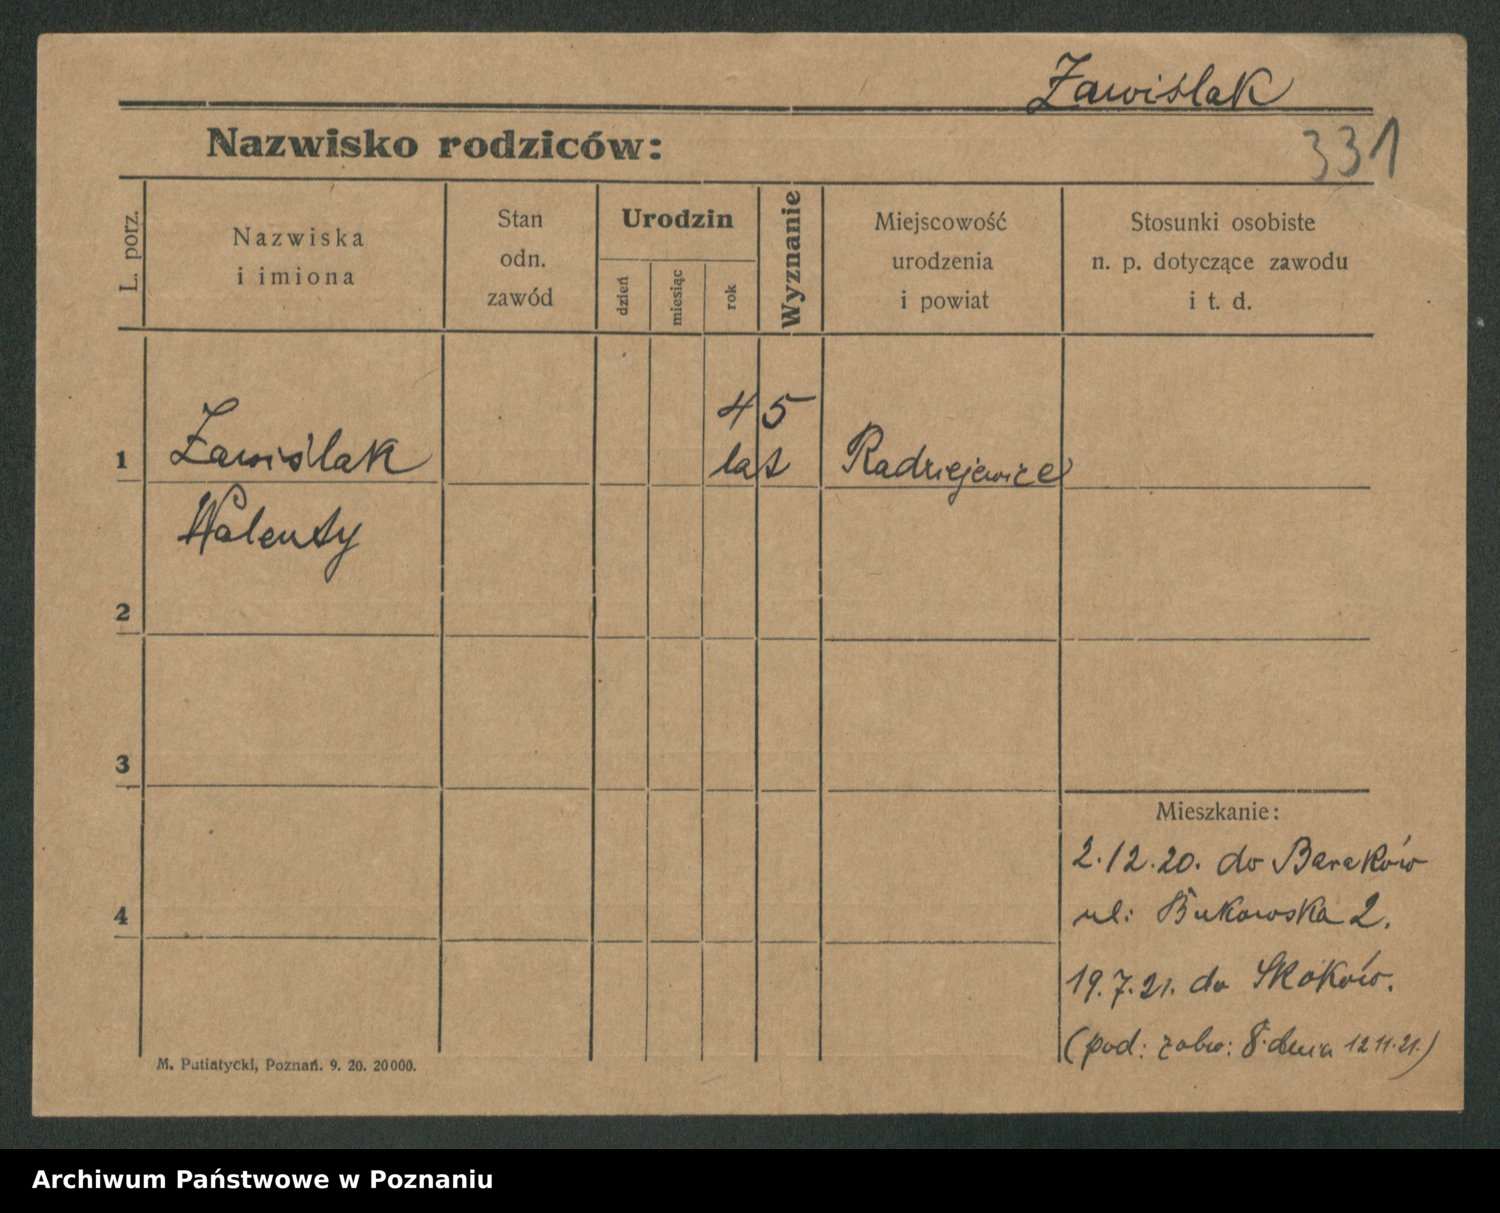 Zawiślak
Nazwisko rodziców:
331
L. porz.
Nazwiska
i imiona
Stan
odn.
zawód
Urodzin
dzień
miesiąc
rok
Wyznanie
Miejscowość
urodzenia
i powiat
Stosunki osobiste
n. p. dotyczące zawodu
i t. d.
45
1 Zawiślak lat Radziejewice
Walenty
2
3
Mieszkanie:
2.12.20. do Baraków
4
ul: Bukowska 2.
19.7.21. do Skoków.
(pod: zabw: 8. dnia 12 11.21.)
M. Putiatycki, Poznań. 9. 20. 20000.
Archiwum Państwowe w Poznaniu